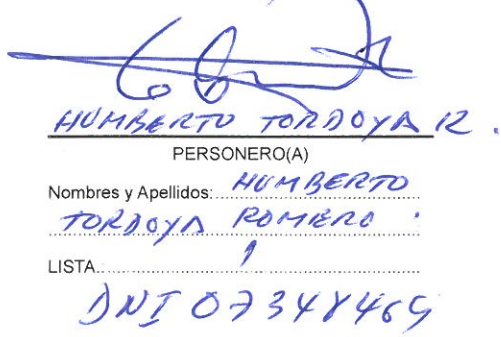 HUMBERTO TORDOYA R.
PERSONERO(A)
Nombres y Apellidos: HUMBERTO
TORDOYA ROMERO.
LISTA: 1
DNI